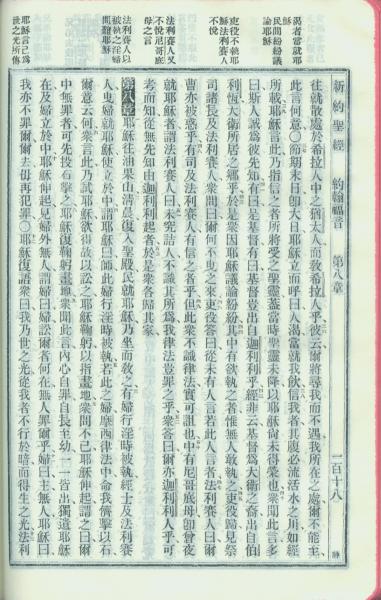 新約聖經 約翰福音 第八章 二百十八
渴者當就耶
穌
民間紛紛議
論耶穌
吏役不執耶
穌法利賽人
不悅
法利賽人又
不悅尼哥底
母之言
法利賽人以
被執之淫婦
問難耶穌
耶穌言己爲
世之光所傳
往就散處於希拉人中之猶太人而敎希拉人乎彼云爾將尋我而不遇我所在之處爾不能至
此言何意○節期末日卽大日耶穌立而呼曰人渴當就我飲信我者其腹必流活水之川如經
所載耶穌言此乃指信之者所將受之聖靈蓋當時聖靈未降以耶穌尚未得榮也衆聞此言多
曰斯人誠爲彼先知有曰是基督有曰基督豈出自迦利利乎經非云基督爲大衛之裔出自伯
利恆大衛所居之鄉乎於是衆因耶穌議論紛紛其中有欲執之者惟無人敢執之吏役歸見祭
司諸長及法利賽人衆問曰爾何不曳之來吏役答曰從未有人言若此人者法利賽人曰爾
曹亦被惑乎有司及法利賽人有信之者乎但此衆不識律法實可詛也中有尼哥底母卽曾夜
就耶穌者謂法利賽人曰未究詰人不識其所爲我律法豈罪之乎衆答曰爾亦迦利利人乎可
考而知從無先知由迦利利起者於是衆各歸其家
第八章耶穌往油果山清晨復入聖殿民就耶穌乃坐而敎之有婦行淫時被執經士及法利賽
人曳婦就耶穌使立於中謂耶穌曰師此婦行淫時被執若此之婦摩西律法中命我儕擊以石
爾意云何衆言此乃試耶穌欲得故以訟之耶穌鞠躬以指畫地衆問不已耶穌伸起謂之曰爾
中無罪者可先投石擊之耶穌復鞠躬畫地衆聞此言內心自罪自長至幼一一皆出獨遺耶穌
在及婦立於中耶穌伸起見婦外無人謂婦曰婦訟爾者何在無人罪爾乎婦曰主無人耶穌曰
我亦不罪爾爾去毋再犯罪○耶穌復語衆曰我乃世之光從我者不行於暗而得生之光法利